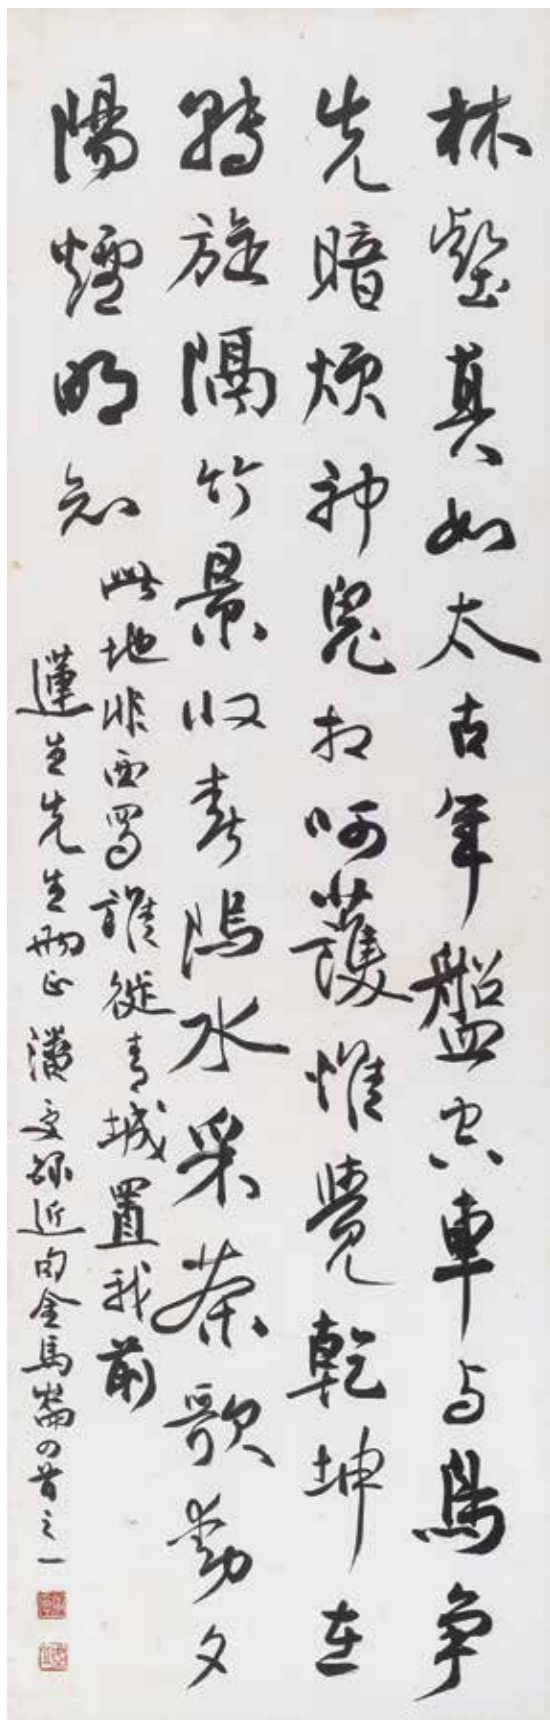 林壑真如太古年盤空車与馬爭
先暗煩神鬼相呵護惟覺乾坤在
轉旋隔竹景收春隖水采茶歌動夕
陽煙明知
此地非西蜀誰從青城置我前
蓮生先生哂正 潘受録近句金馬崙四首之一